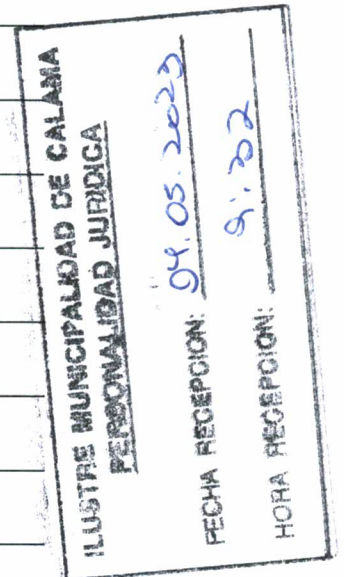 ILUSTRE MUNICIPALIDAD DE CALAMA
PERSONALIDAD JURIDICA
FECHA RECEPCION: 04.05.2023
HORA RECEPCION: